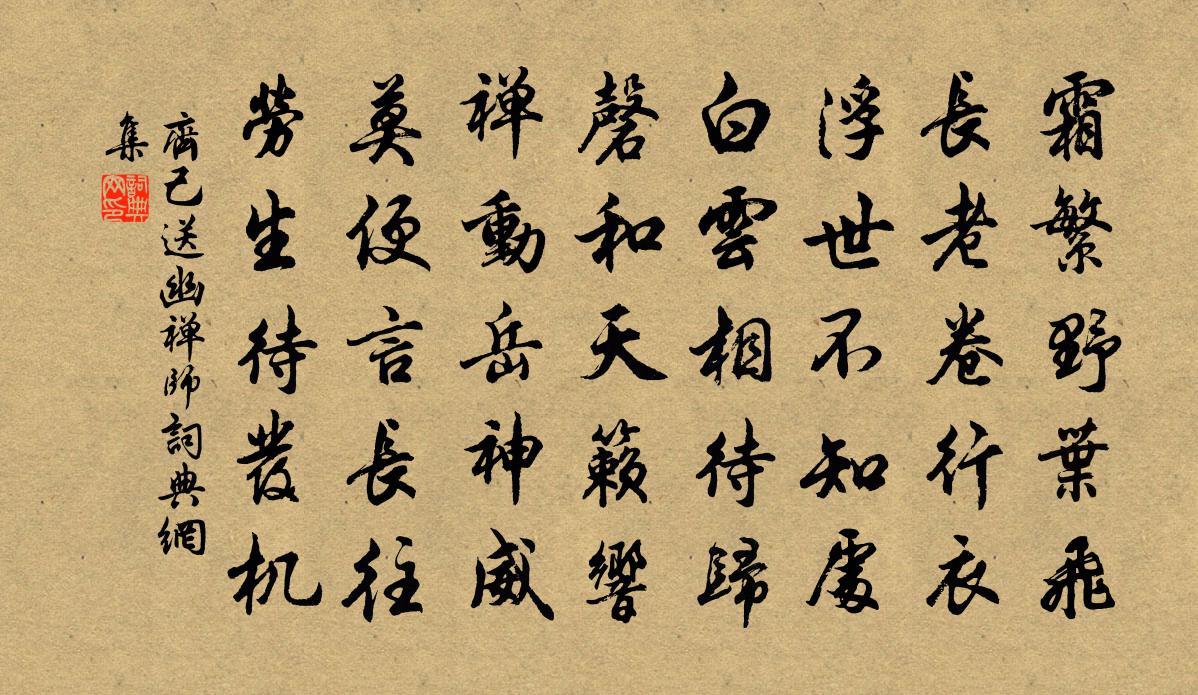 霜繁野葉飛
長老卷行衣
浮世不知處
白雲相待歸
磬和天籟響
禅動岳神威
莫便言長往
勞生待發机
齊己送幽禅師詞典網
集
詞典
网印